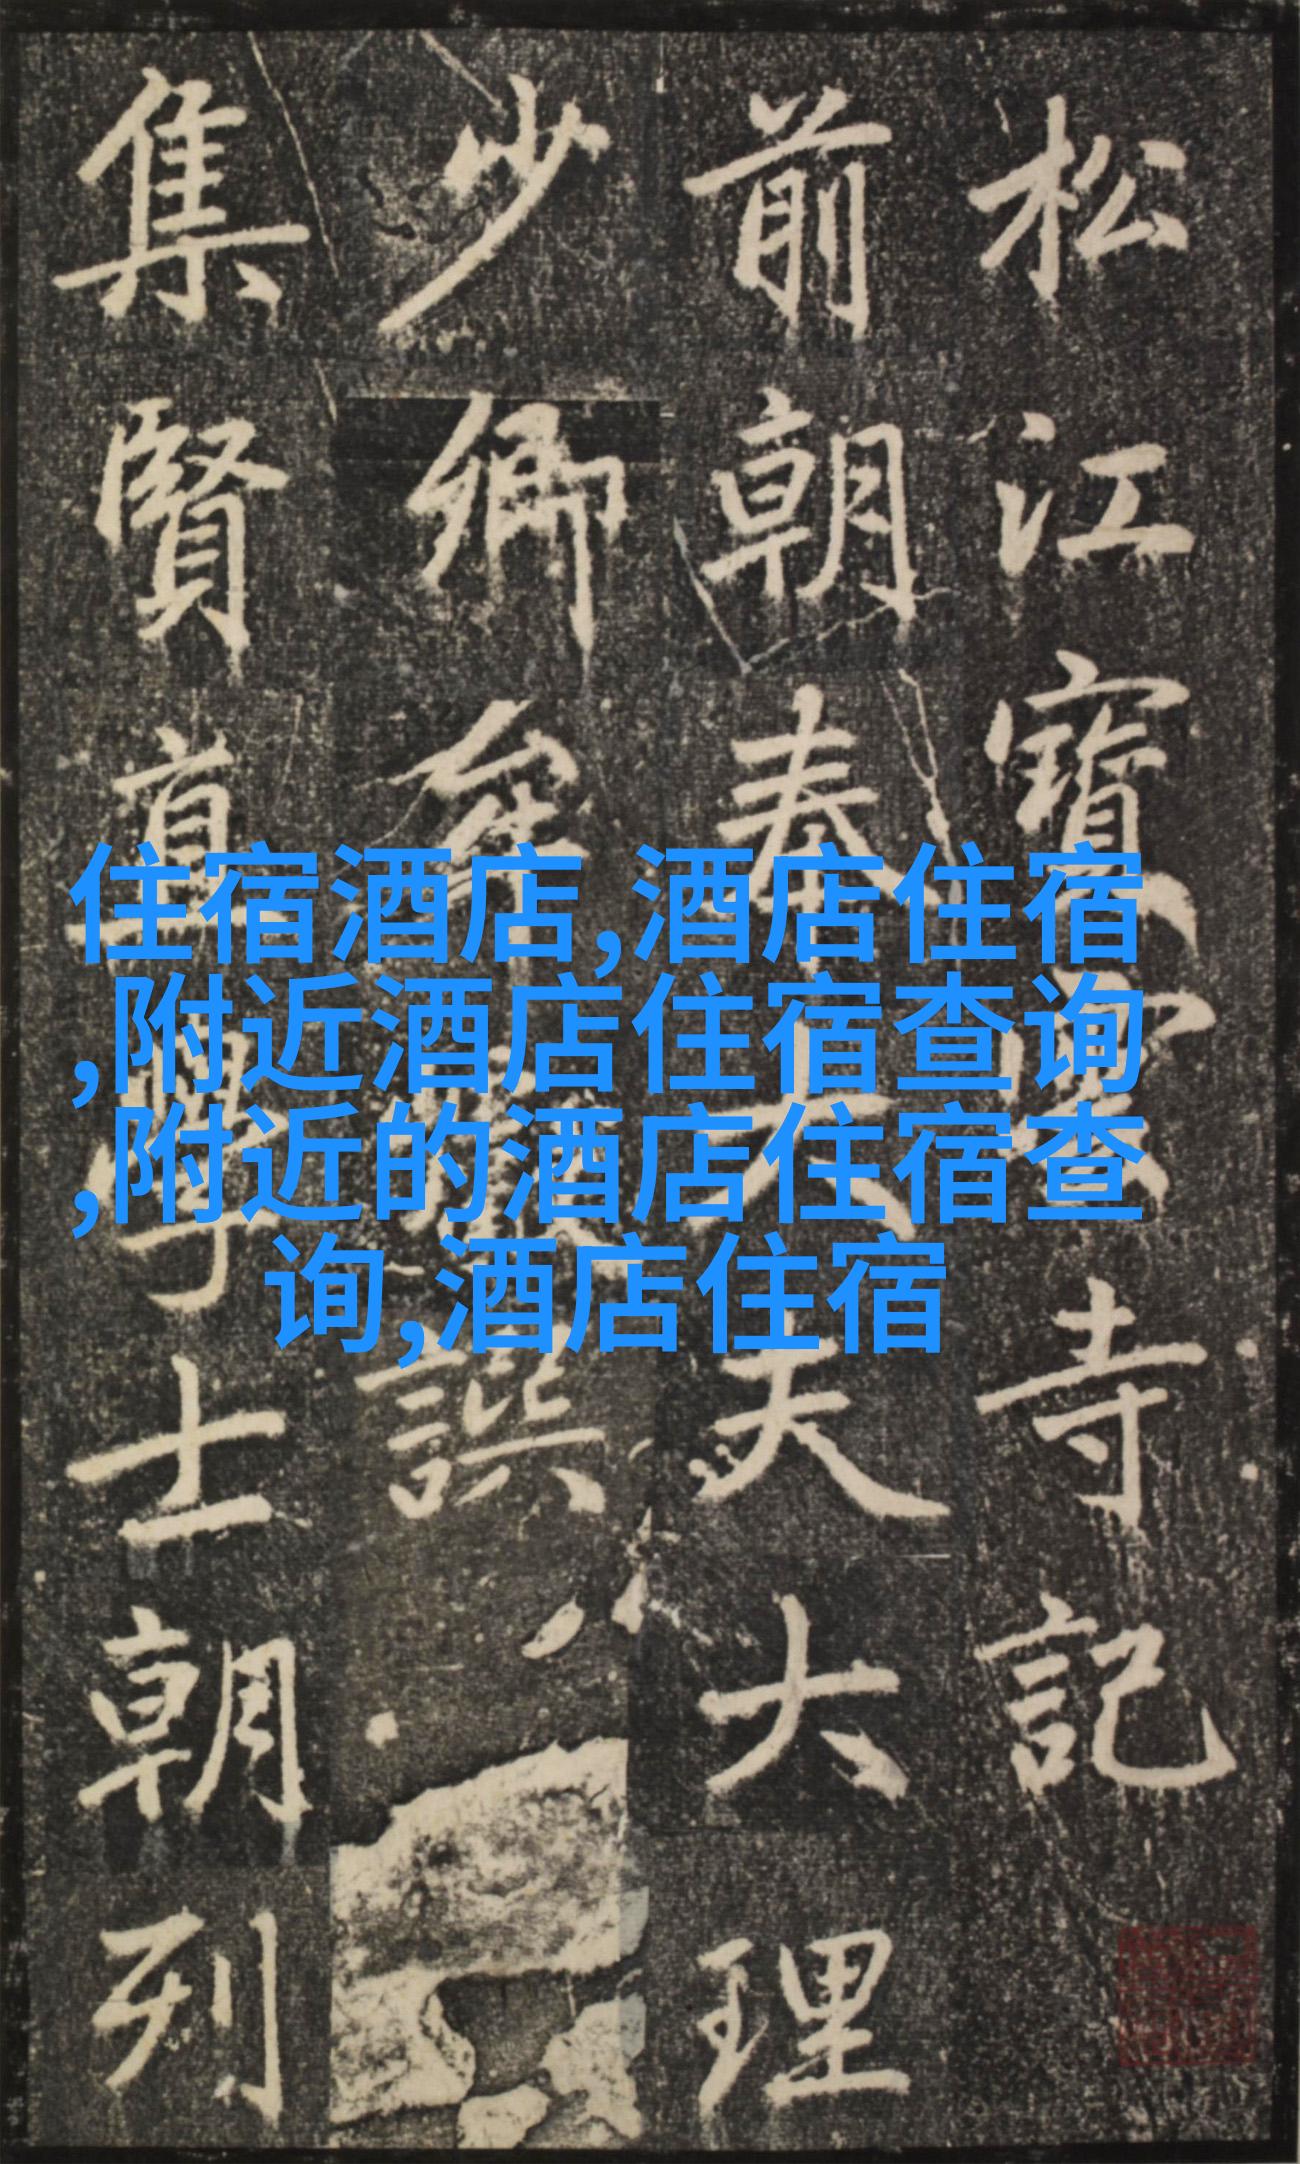 松江寶雲寺記
前朝奉大夫大理
少卿牟譔
集賢直學士朝列
住宿酒店,酒店住宿
,附近酒店住宿查询
,附近的酒店住宿查
询,酒店住宿